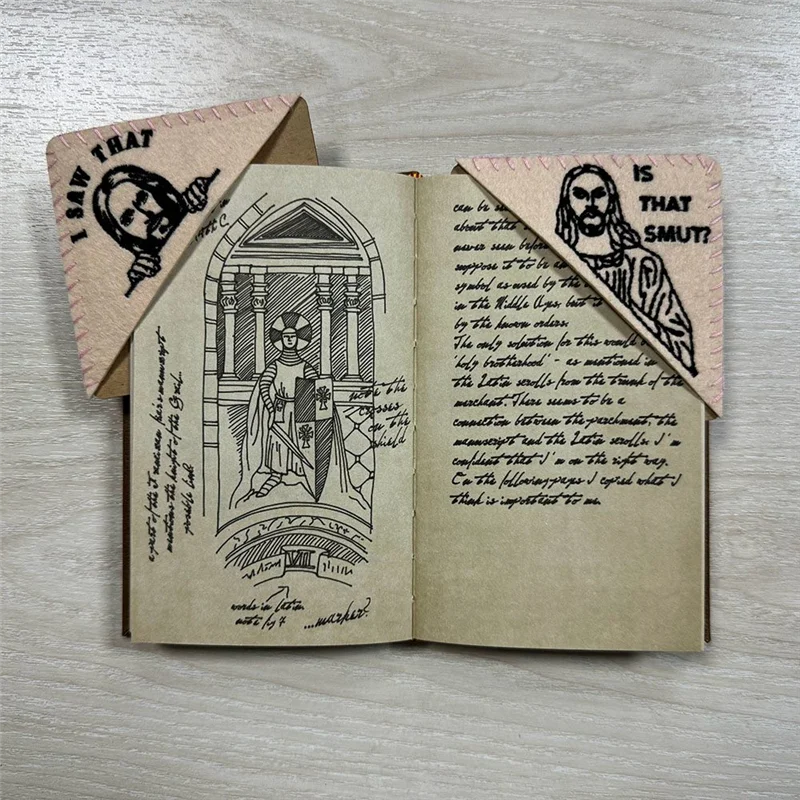 I SAW THAT
IS
THAT
SMUT?
note the
crosses
on the
shield
mentions the height of the Grail.
possible link?
VII
words in latin
...marker?
can be
about that
never seen before
suppose it to be an
symbol as used by the
in the Middle Ages, but is
by the known orders.
The only solution for this would
'holy brotherhood' - as mentioned in
the Latin scrolls from the trunk of the
merchant. There seems to be a
connection between the parchment, the
manuscript and the Latin scrolls. I'm
confident that I'm on the right way.
On the following pages I copied what I
think is important to me.